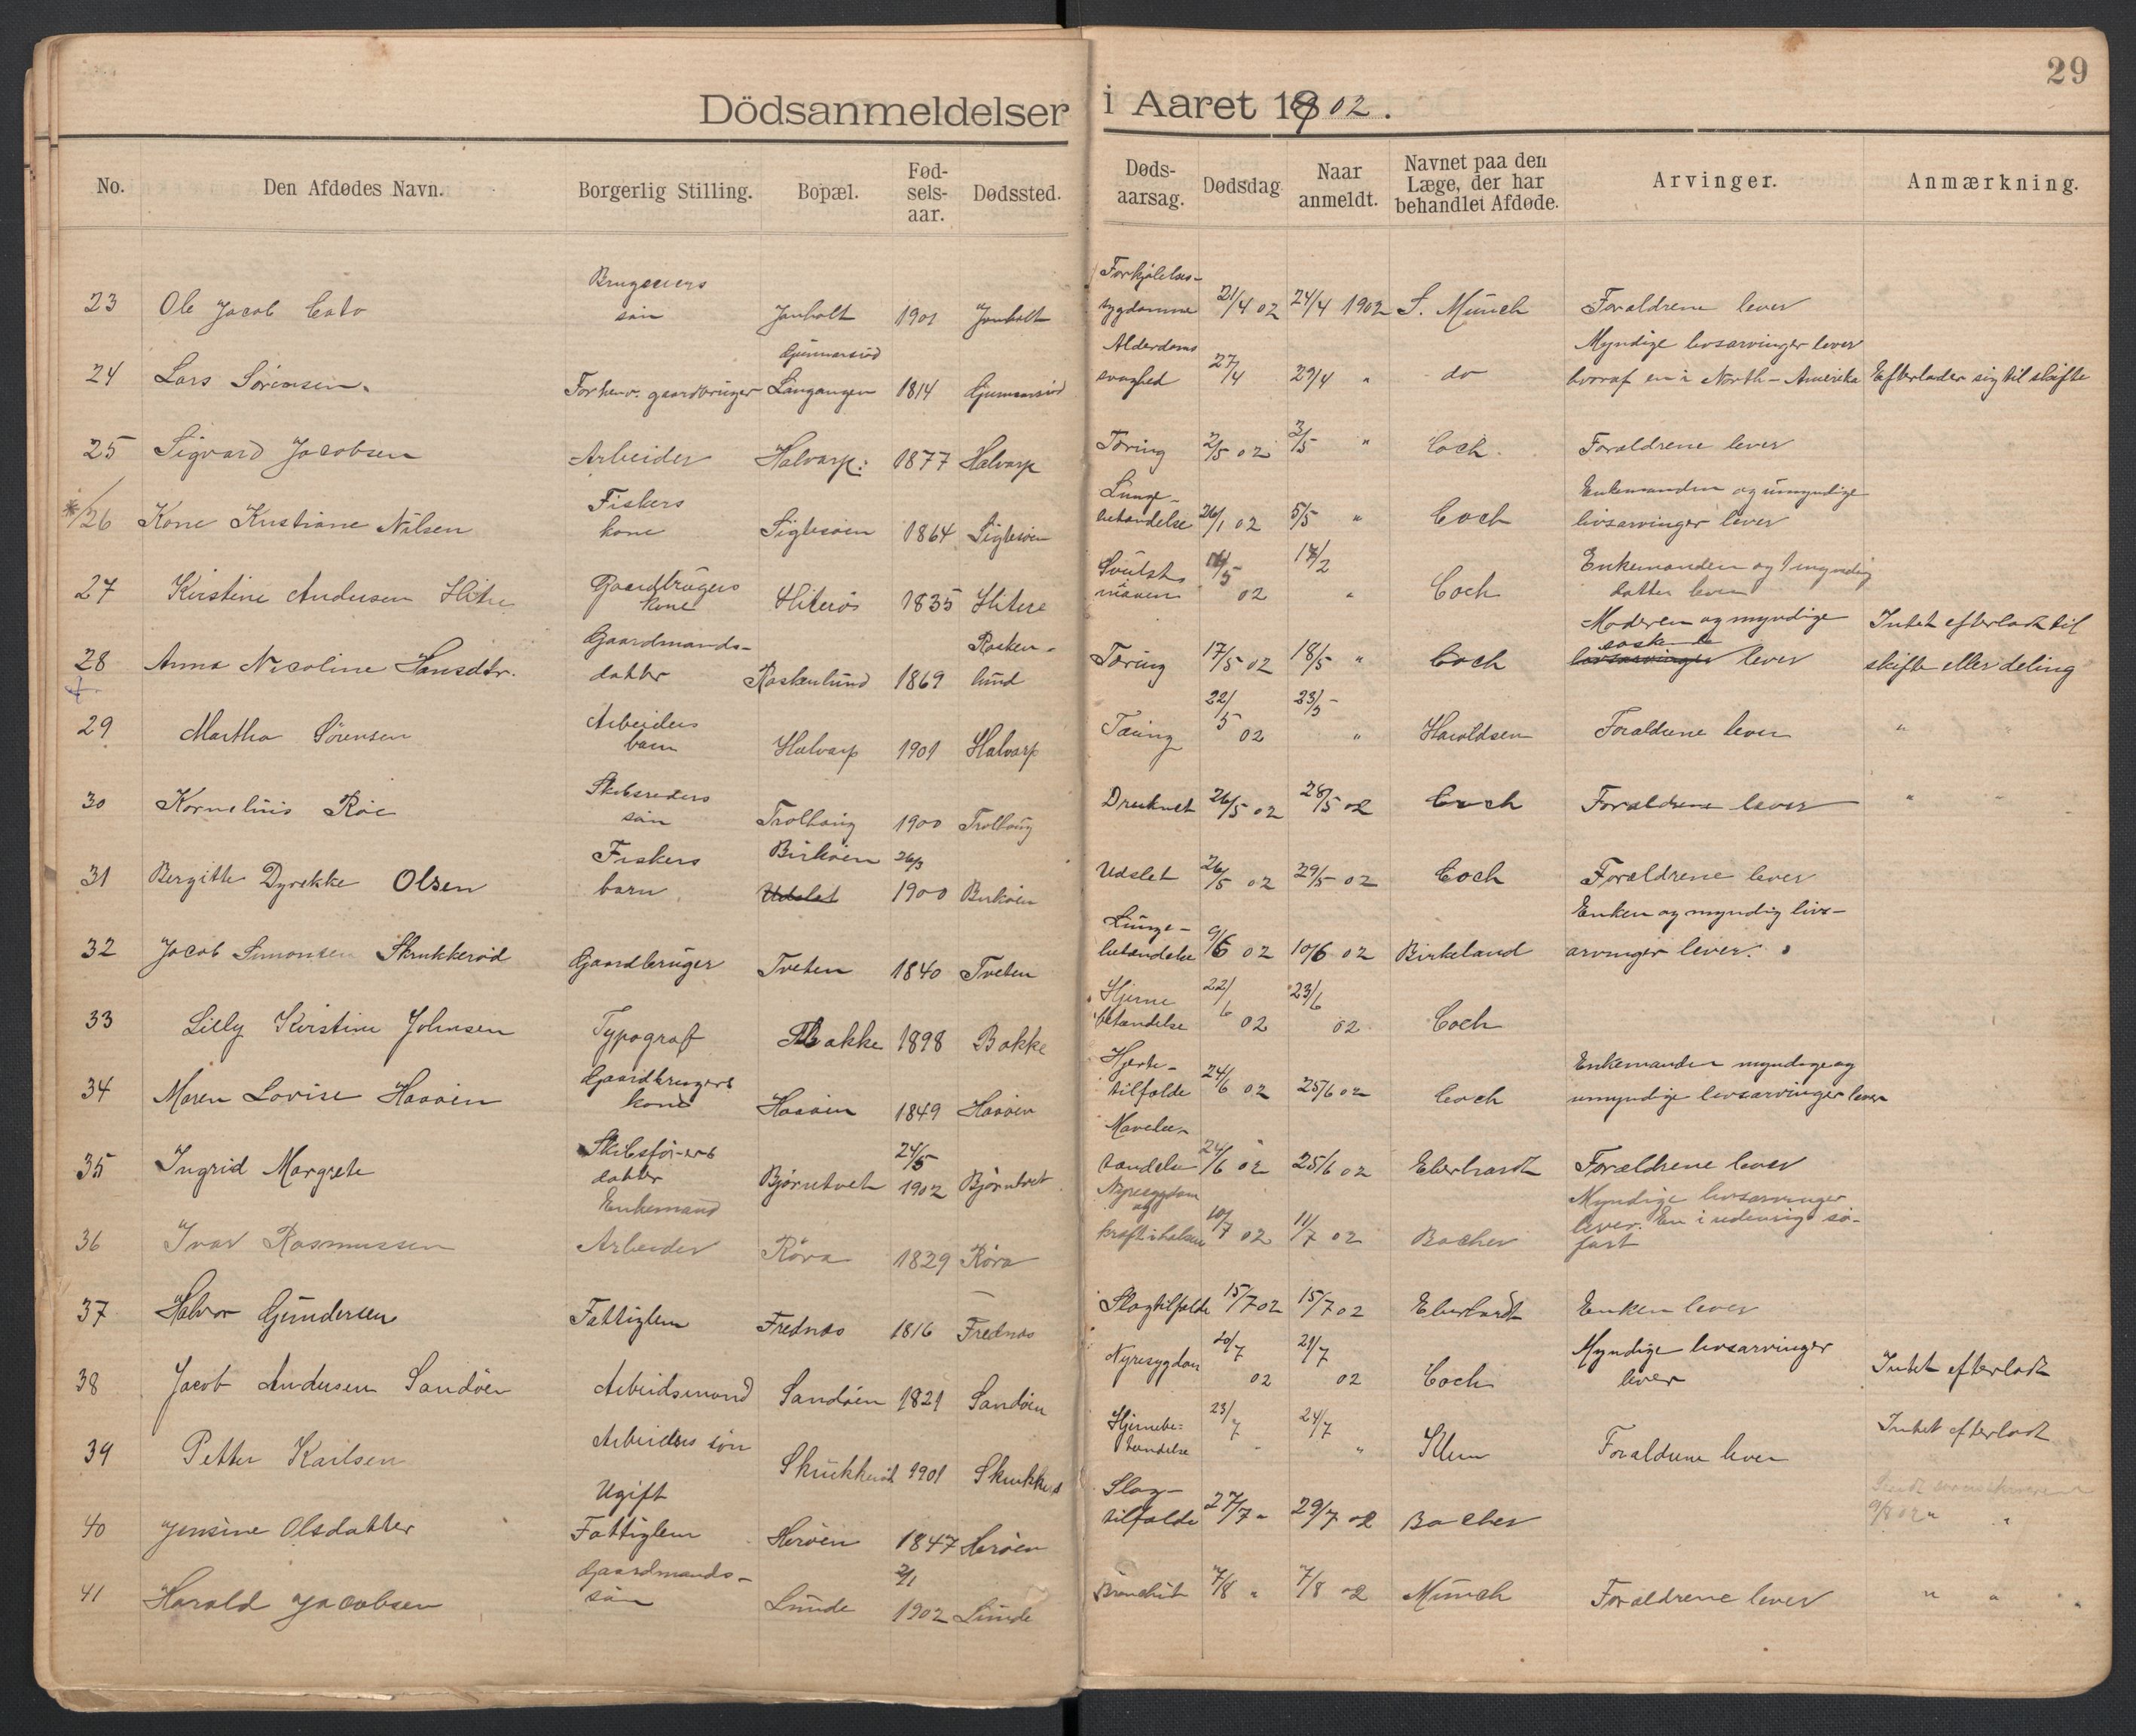 29
Dödsanmeldelser i Aaret 1902.
No. Den Afdødes Navn. Borgerlig Stilling. Bopæl. Fød-sels-aar. Dødssted. Døds-aarsag. Dødsdag Naar anmeldt. Navnet paa den Læge, der har behandlet Afdøde. Arvinger. Anmærkning.
23 Ole Jacob Cato Brugseiers sön Janholt 1901 Janholt Forkjölelses-sygdomme 21/4 02 24/4 1902 S. Münch Forældrene lever
24 Lars Sörensen Forhenv. gaardbruger Gunnarsröd Langangen 1814 Gunnarsröd Alderdoms svaghed 27/4 29/4 " do Myndige livsarvinger lever hvoraf en i North-Amerika Efterlader sig til skifte
25 Sigvard Jacobsen Arbeider Halvarp: 1877 Halvarp Tæring 2/5 02 3/5 " Coch. Forældrene lever
*/26 Kone Kristiane Nilsen Fiskers kone Siglesöen 1864 Siglesöen Lunge-betændelse 26/1 02 5/5 " Coch Enkemanden og umyndige livsarvinger lever
27 Kirstine Andersen Hitre Gaardbrugers kone Hiterös 1835 Hitere Svulst i maven 02 " Coch Enkemanden og 1 myndig datter lever
28 Anna Nicoline Hansdtr. Gaardmands-datter Raskenlund 1869 Rasken-lund Tæring 17/5 02 18/5 " Coch Moderen og myndige söskende livsarvinger lever Intet efterladt til skifte eller deling
29 Martha Sörensen Arbeiders barn Halvarp 1901 Halvarp Tæring 22/5 02 23/5 " Haroldsen Forældrene lever "
30 Kornelius Röe Skibsreders sön Trolhaug 1900 Trolhaug Druknet 26/5 02 28/5 02 Coch Forældrene lever "
31 Bergitte Dyrekke Olsen Fiskers barn Birköen Udslet 26/3 1900 Birköen Udslet 26/5 02 29/5 02 Coch Forældrene lever
32 Jacob Simonsen Skrukkeröd Gaardbruger Tveten 1840 Tveten Lunge-betændelse 9/6 02 10/6 02 Birkeland Enken og myndig livs-arvinger lever.
33 Lilly Kirstine Johnsen Typograf Bakke 1898 Bakke Hjerne betændelse 22/6 02 23/6 02 Coch
34 Maren Lovise Haaöen Gaardbrugers kone Haaöen 1849 Haaöen Hjerte-tilfælde 24/6 02 25/6 02 Coch Enkemanden myndige og umyndige livsarvinger lever
35 Ingrid Margrete Skibsförers datter Björntvet 24/5 1902 Björntvet Mavebe-tændelse 24/6 02 25/6 02 Eberhardt Forældrene lever
36 Ivar Rasmussen Enkemand Arbeider Röra 1829 Röra Nyresygdom og kræft i halsen 10/7 02 11/7 02 Bacher Myndige livsarvinger lever. En i udenrigs sö-fart
37 Halvor Gundersen Fattiglem Frednæs 1816 Frednæs Slagtilfælde 15/7 02 15/7 02 Eberhardt Enken lever
38 Jacob Andersen Sandöen Arbeidsmand Sandöen 1821 Sandöen Nyresygdom 20/7 02 21/7 02 Coch Myndige livsarvinger lever Intet efterladt
39 Petter Karlsen Arbeiders sön Skrukkeröd 1901 Skrukkeröd Hjernebe: tændelse 23/7 " 24/7 " Klem Forældrene lever Intet efterladt
40 Jensine Olsdatter Ugift Fattiglem Heröen 1847 Heröen Slag-tilfælde 27/7 " 29/7 02 Bacher 9/8 02 " "
41 Harald Jacobsen Gaardmands-sön Lunde 2/1 1902 Lunde Bronchit 7/8 " 7/8 02 Münch Forældrene lever " "